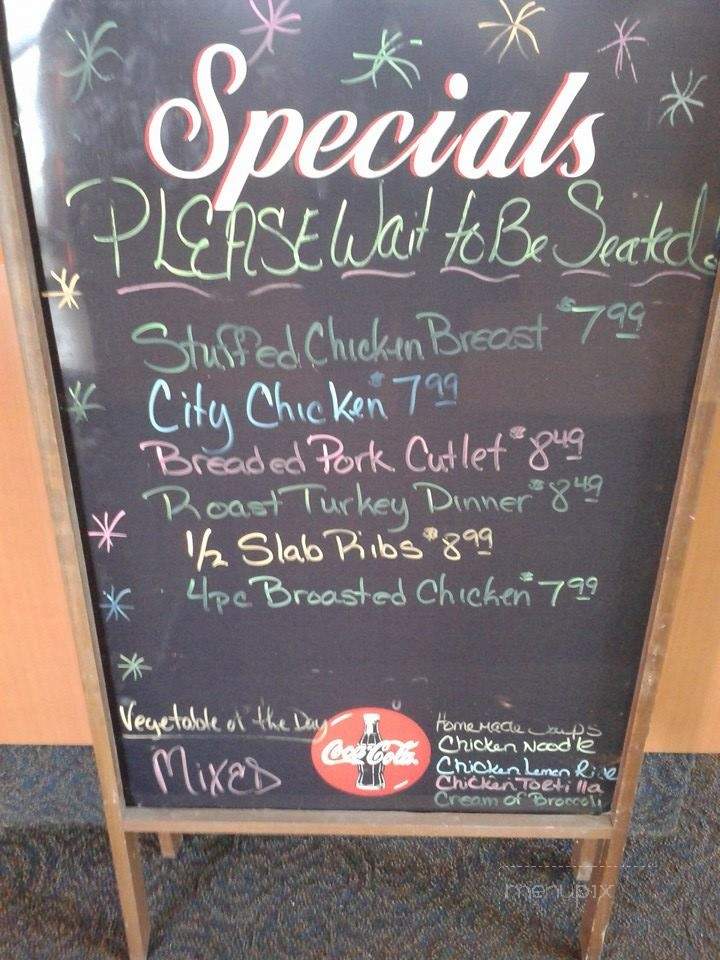 Specials
PLEASE Wait to Be Seated.
Stuffed Chicken Breast $7.99
City Chicken $7.99
Breaded Pork Cutlet $8.49
Roast Turkey Dinner $8.49
1/2 Slab Ribs $8.99
4pc Broasted Chicken $7.99
Vegetable of the Day
MIXED
Coca-Cola
Homemade Soups
Chicken Noodle
Chicken Lemon Rice
Chicken Tortilla
Cream of Broccoli
menupix